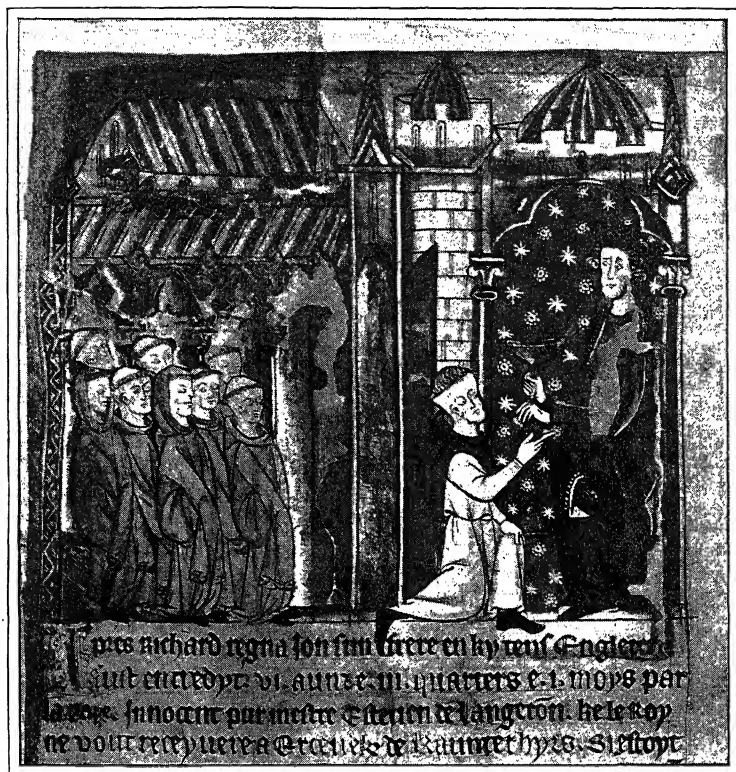 Apres Richard regna Jon sun frere en ky tens Engletere
fust entredyt. vi. aunz e. iii. quarters e. i. moys par
la pape. Innocent pur mestre Estevene de langeton. ke le Roy
ne volt receyuere a Erceueke de Kaunterbyrs. Si estoyt